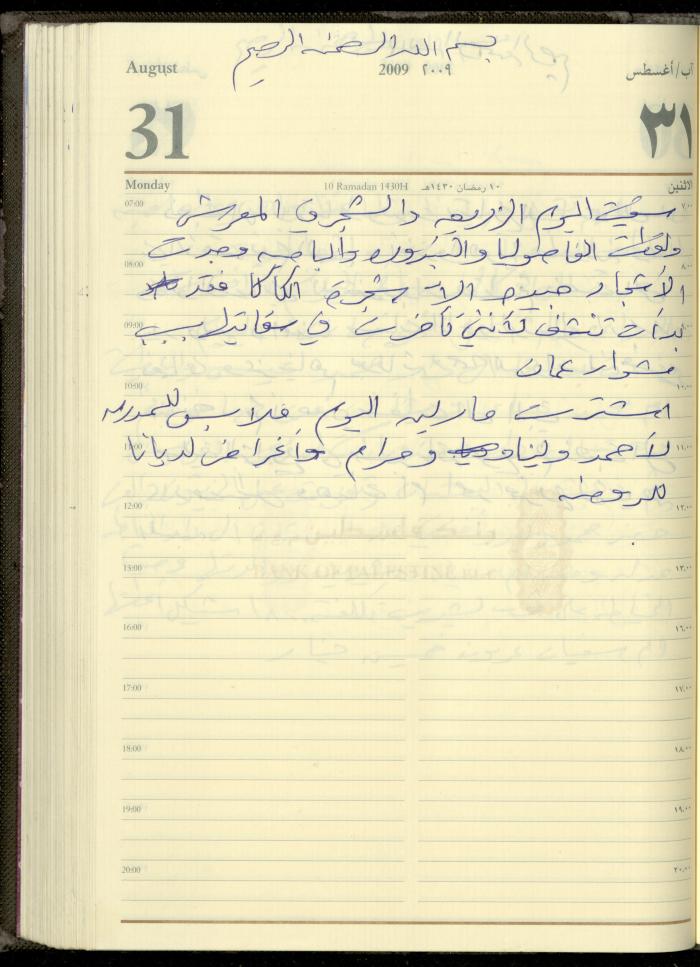 بسم الله الرحمن الرحيم
August 2009 ٢٠٠٩ آب/أغسطس
31 ٣١
Monday 10 Ramadan 1430H ١٠ رمضان ١٤٣٠هـ الاثنين
07:00 ٧,٠٠
سقيت اليوم الزريعه والشجر في المعرش
ولقطت الفاصوليا والبندوره والباميه وجدت
08:00 ٨,٠٠
الأشجار جيده الا شجرة الكاكا فقد
09:00
بدأت تنشف لأنني تأخرت في سقايتها بسبب
مشوار عمان
10:00 ١٠,٠٠
اشترت مارلين اليوم ملابس للمدرسه
11:00 ١١,٠٠
لأحمد ولينا ومرام وأغراض لديانا
للروضه
12:00 ١٢,٠٠
BANK OF PALESTINE
13:00 ١٣,٠٠
16:00 ١٦,٠٠
17:00 ١٧,٠٠
18:00 ١٨,٠٠
19:00 ١٩,٠٠
20:00 ٢٠,٠٠